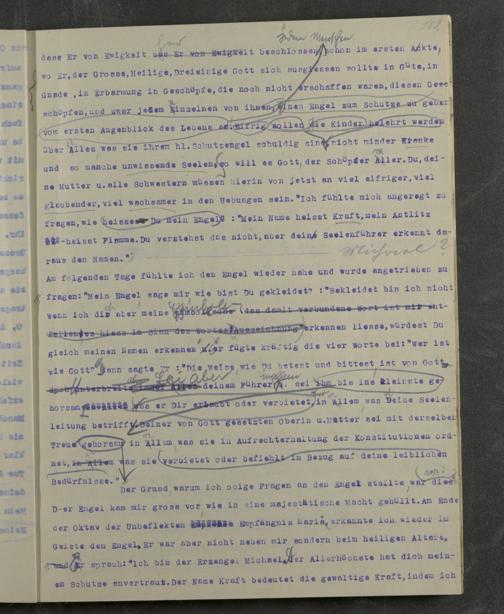 112
her jedem Menschen
dass Er von Ewigkeit das Er von Ewigkeit beschlossen, schon im ersten Ackte,
wo Er, der Grosse, Heilige, Dreieinige Gott sich ausgiessen wollte in Güte, in
Gnade , in Erbarmung in Geschöpfe, die noch nicht erschaffen waren, diesen Gesc
schöpfen, und zwar jedem Einzelnen von ihnen einen Engel zum Schutze zu geben
vom ersten Augenblick des Lebens an. eifrig sollen die Kinder belehrt werden
über Alles was sie ihrem hl. Schutzengel schuldig sind, nicht minder Kranke
und so manche unwissende Seelen, so will es Gott, der Schöpfer Aller. Du, dei-
ne Mutter u. alle Schwestern müssen hierin von jetzt an viel eifriger, viel
glaubender, viel wachsamer in den Uebungen sein. "Ich fühlte mich angeregt zu
fragen, wie heissest Du mein Engel : "Mein Name heisst Kraft, mein Antlitz
heisst Flamme. Du verstehst das nicht, aber deine Seelenführer erkennt da-
raus den Namen."
Michael ?
Am folgenden Tage fühlte ich den Engel wieder nahe und wurde angetrieben zu
fragen: "Mein Engel sage mir wie bist Du gekleidet? : "Bekleidet bin ich nicht
Symbole
wenn ich dir aber meine symbolische (das damit verbundene Wort ist mir ent-
fallen, es hiess im Sinn des Wortes Auszeichnung) erkennen liesse, würdest Du
gleich meinen Namen erkennen u. er fügte kräftig die vier Worte bei: "Wer ist
wie Gott". Dann sagte : "Die Weise wie Du betest und bittest ist von Gott,
Sei aber
doch unterbreite Alles deinem Führer u. sei ihm bis ins kleinste ge-
horsam was er Dir erlaubt oder verbietet, in Allem was Deine Seelen-
leitung betrifft. Deiner von Gott gesetzten Oberin u. Mutter sei mit derselben
Treue gehorsam in Allem was sie in Aufrechterhaltung der Konstitutionen ord-
net, in Allem was sie verbietet oder befiehlt in Bezug auf deine leiblichen
Bedürfnisse."
Der Grund, warum ich obige Fragen an den Engel stellte war dies
D-er Engel kam mir gross vor wie in eine majestätische Macht gehüllt. Am Ende
der Oktav der Unbeflekten Empfängnis Mariä, erkannte ich wieder im
Geiste den Engel. Er war aber nicht neben mir sondern beim heiligen Altare,
und Er sprach: "Ich bin der Erzengel Michael, der Allerhöchste hat dich mein-
em Schutze anvertraut. Der Name Kraft bedeutet die gewaltige Kraft, indem ich